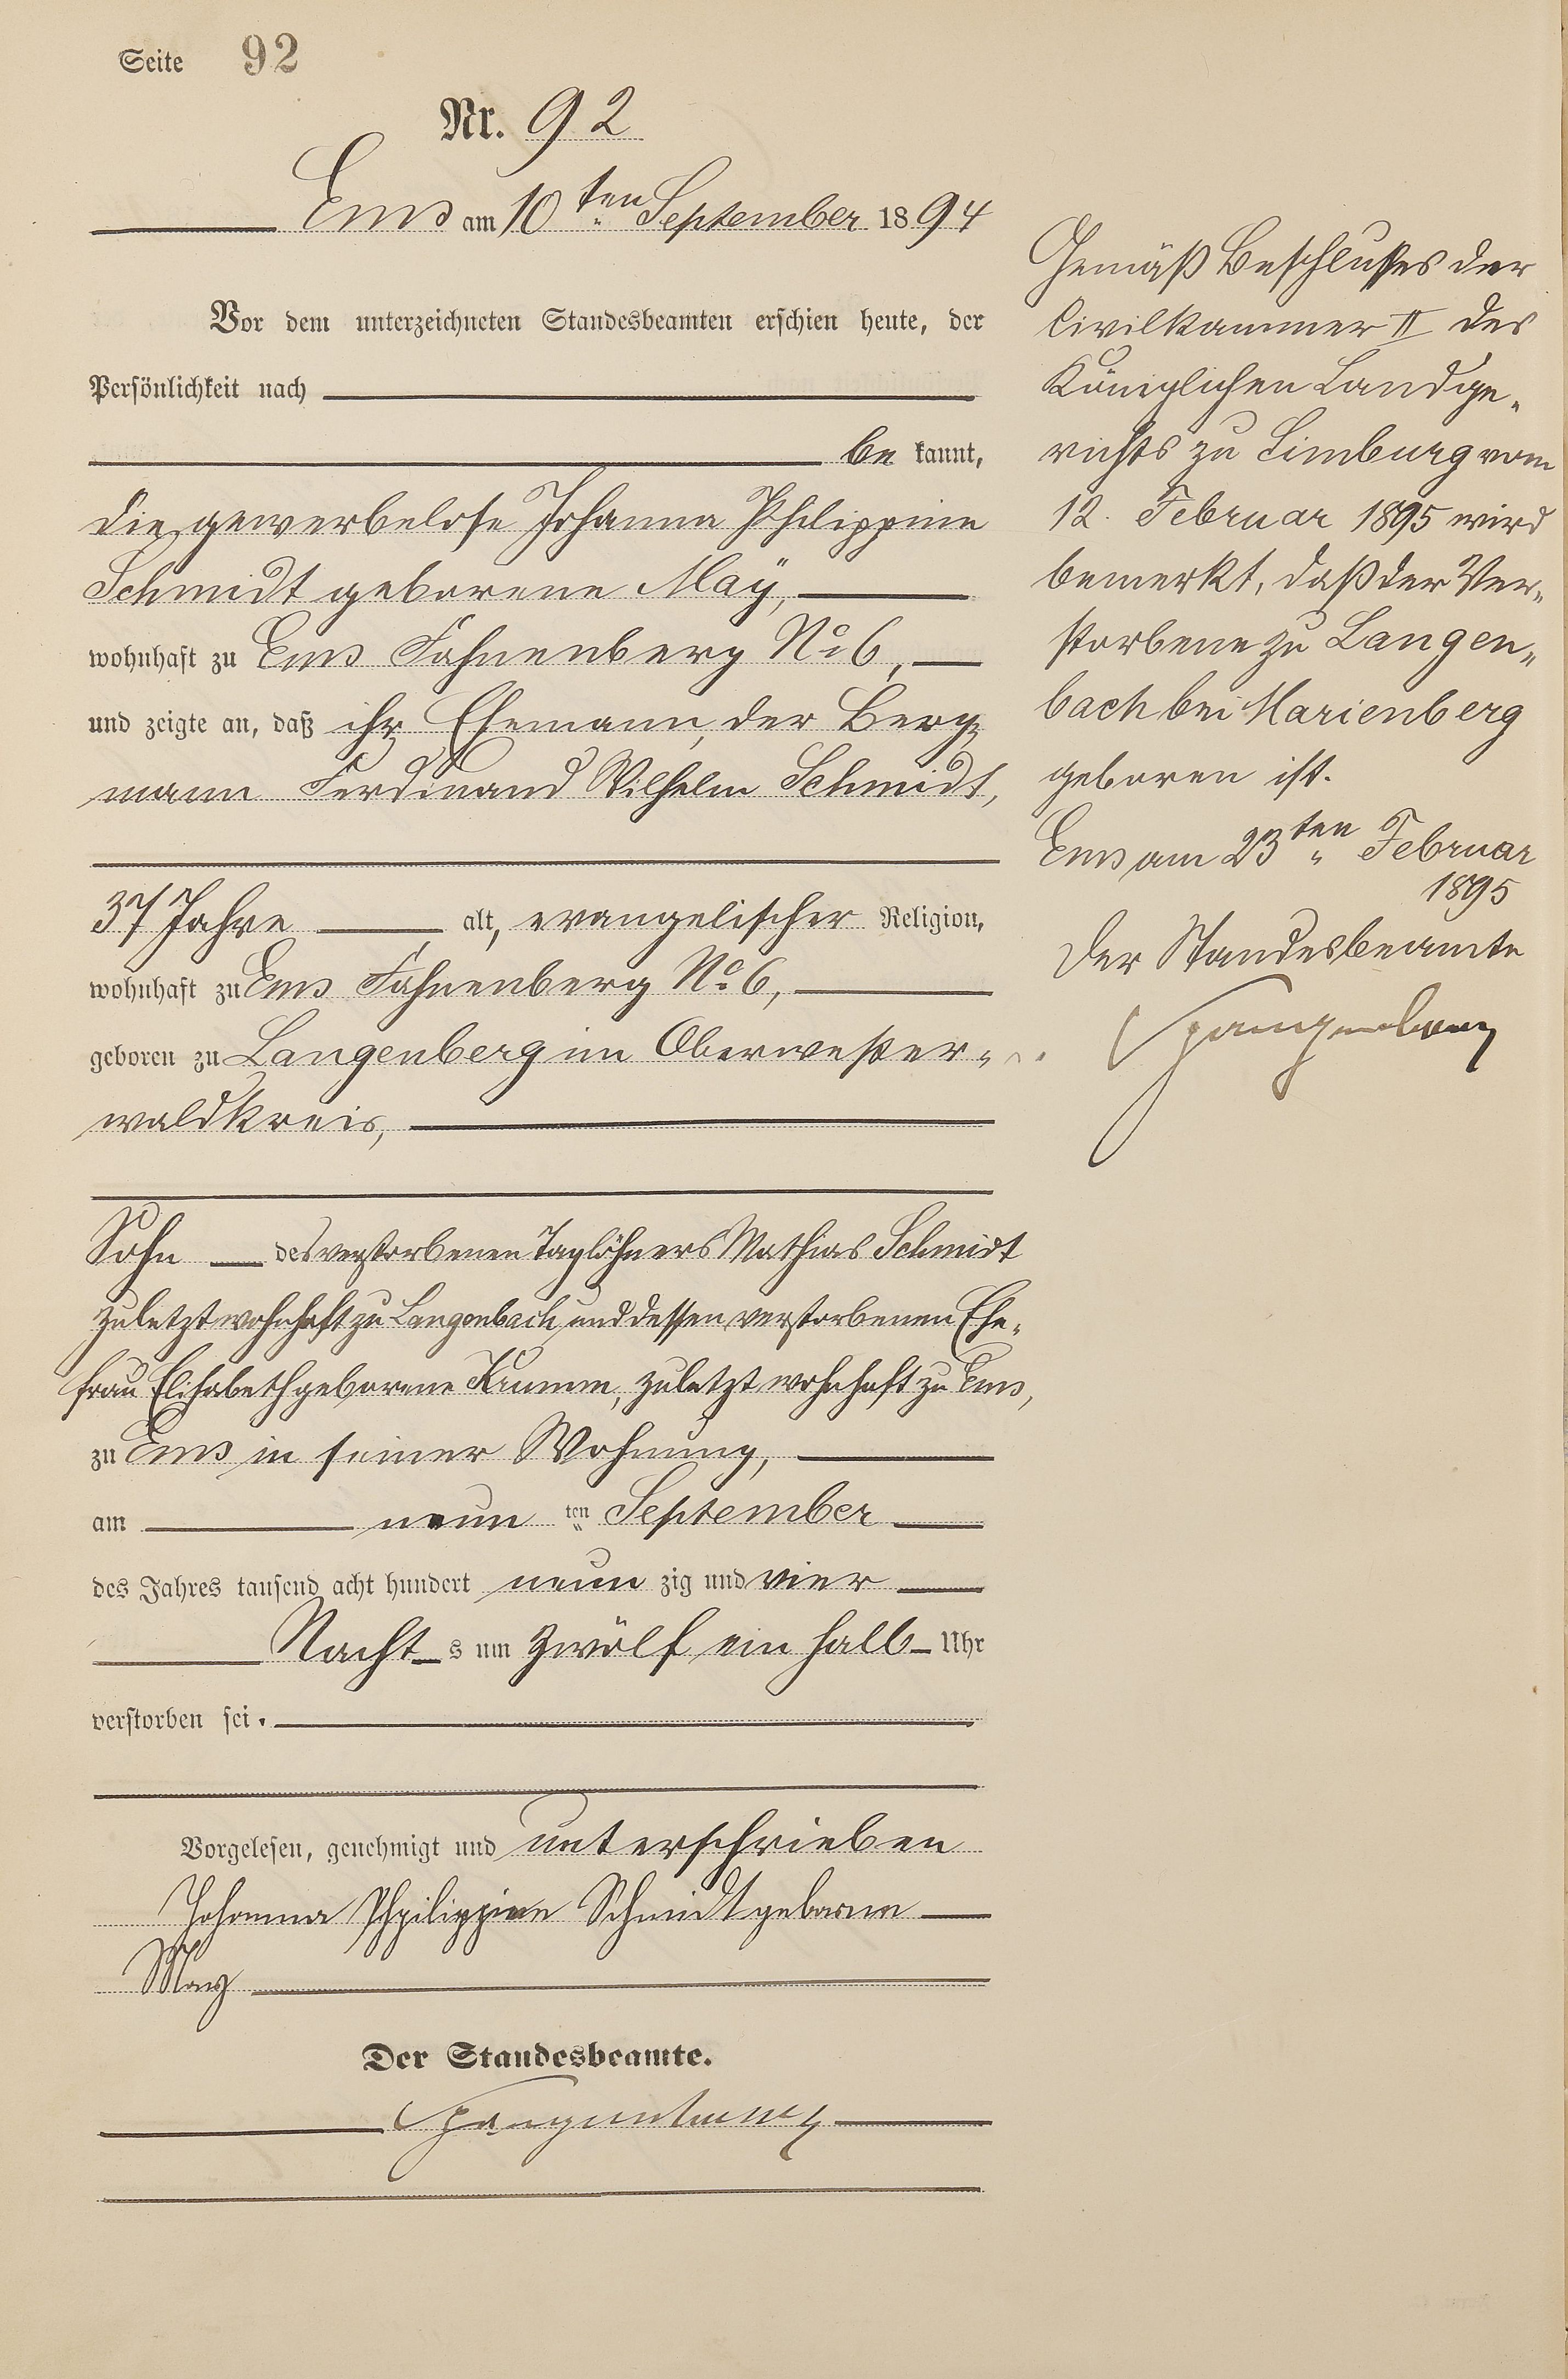 Seite 92
Nr. 92
Ems am 10ten September 1894
Vor dem unterzeichneten Standesbeamten erschien heute, der
Persönlichkeit nach
be kannt,
die gewerbelose Johanna Philippine
Schmidt geborene Maÿ,
wohnhaft zu Ems Fahnenberg No 6,
und zeigte an, daß ihr Ehemann, der Berg-
mann Ferdinand Wilhelm Schmidt,
37 Jahre alt, evangelischer Religion,
wohnhaft zu Ems Fahnenberg No 6,
geboren zu Langenberg im Oberwester-
waldkreis,
Sohn des verstorbenen Taglöhners Mathias Schmidt
zuletzt wohnhaft zu Langenbach und dessen verstorbenen Ehe-
frau Elisabeth geborene Krumm, zuletzt wohnhaft zu Ems,
zu Ems in seiner Wohnung,
am neun ten September
des Jahres tausend acht hundert neun zig und vier
Nacht s um zwölf ein halb Uhr
verstorben sei.
Vorgelesen, genehmigt und unterschrieben
Johanna Phpilippine Schmidt geborne
May
Der Standesbeamte.
Gemäß Beschlusses der
Civilkammer II des
Königlichen Landge-
richts zu Limburg vom
12. Februar 1895 wird
bemerkt, daß der Ver-
storbene zu Langen-
bach bei Marienberg
geboren ist.
Ems am 23ten Februar
1895
Der Standesbeamte